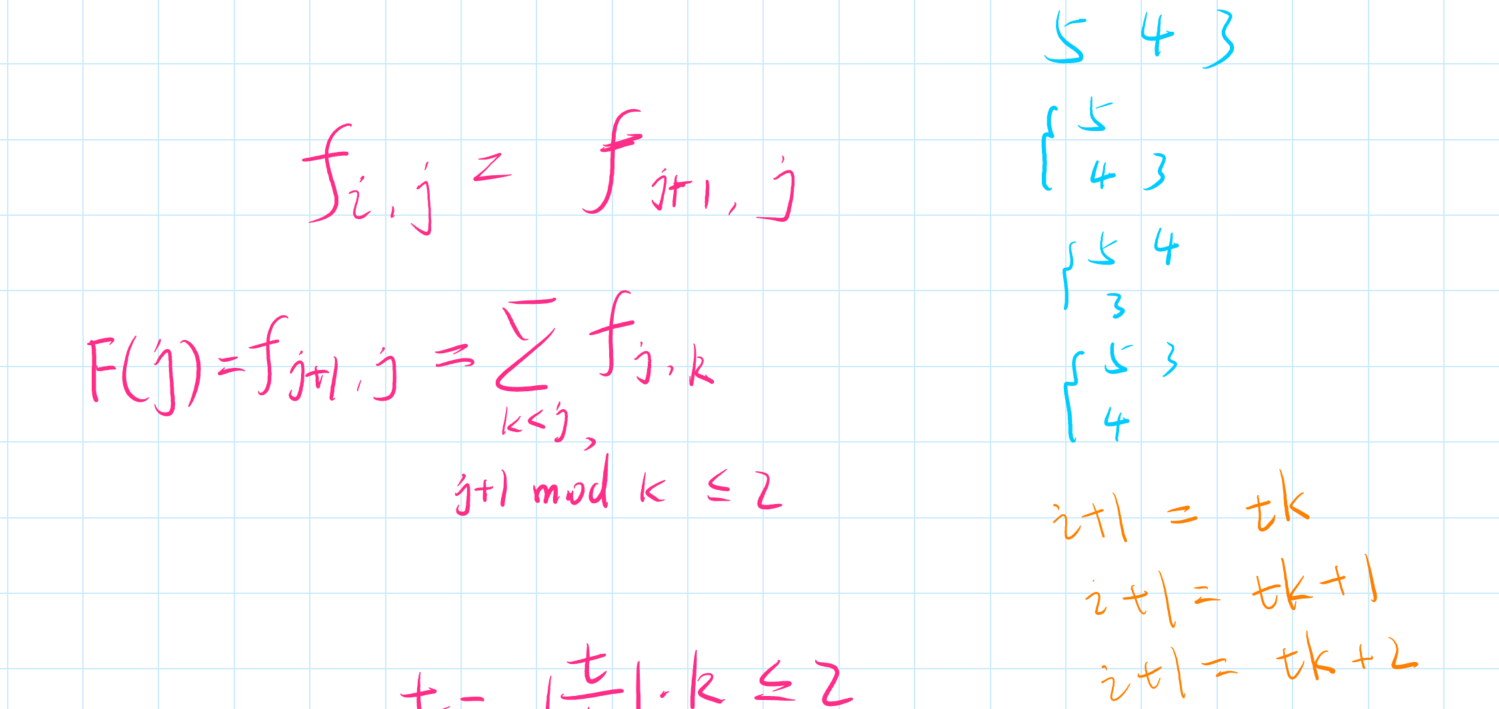 f_{i,j} = f_{j+1,j}
F(j) = f_{j+1,j} = \sum_{k<j, j+1 mod k ≤ 2} f_{j,k}
t - ⌊\frac{t}{}⌋ · k ≤ 2
5 4 3
{ 5
4 3
{ 5 4
3
{ 5 3
4
i+1 = tk
i+1 = tk+1
i+1 = tk+2